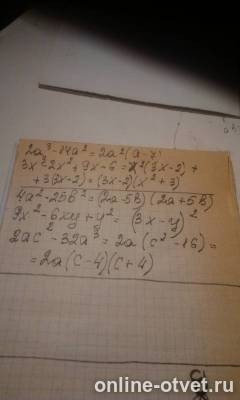 2a³-14a²=2a²(a-7)
3x³-2x²+9x-6=x²(3x-2)+
+3(3x-2)=(3x-2)(x²+3)
4a²-25b²=(2a-5b)(2a+5b)
9x²-6xy+y²=(3x-y)²
2ac²-32a³=2a(c²-16)=
=2a(c-4)(c+4)
online-otvet.ru